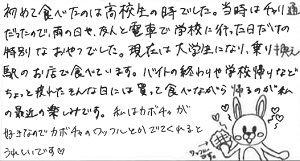 初めて食べたのは高校生の時でした。当時はチャリ通
だったので、雨の日や、友人と電車で学校に行った日だけの
特別なおやつでした。現在は大学生になり、乗り換え
駅のお店で食べています。バイトの終わりや学校帰りなど
ちょっと疲れたそんな日には買って食べながら帰るのが私
の最近の楽しみです。私はカボチャが
好きなのでカボチャのワッフルとかでてくれると
うれしいです♡